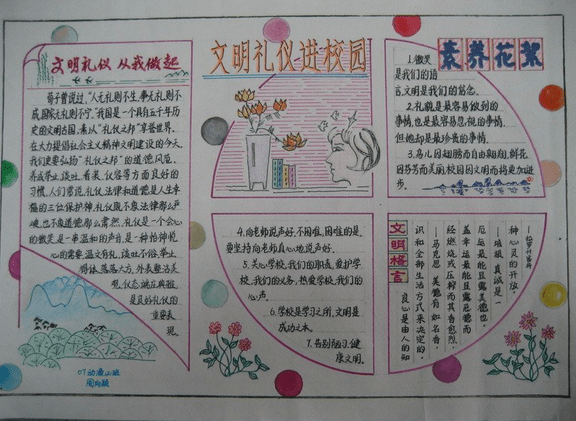 文明礼仪 从我做起
荀子曾说过，“人无礼则不生，事无礼则不
成，国家无礼则不宁”，“我国是一个具有五千年历
史的文明古国，素以“礼仪之邦”享誉世界。
在大力提倡社会主义精神文明建设的今天，
我们更要弘扬“礼仪之邦”的道德风范，
养成举止、谈吐、着装、仪容等方面良好的
习惯，人们常说，礼仪、法律和道德是人生幸
福的三位保护神，礼仪既不象法律那么严
峻，也不象道德那么肃然，礼仪是一个会心
的微笑，是一串温和的声音，是一种怡神悦
心的需要。温文有礼，谈吐不俗，举止
得体，落落大方，外表整洁美
观，仪态端庄典雅，
是良好礼仪的
重要表
现。
07动漫山班
文明礼仪进校园
素养花絮
1.微笑
是我们的语
言，文明是我们的信念。
2.礼貌是最容易做到的
事情，也是最容易忽视的事情，
但她却是最珍贵的事情。
3.鸟儿因翅膀而自由翱翔，鲜花
因芬芳而美丽，校园因文明而将更加进
步。
4.向老师说声好，不困难，困难的是
要坚持向老师真心地说声好。
5.关心学校，我们的职责，爱护学
校，我们的义务，热爱学校，我们的
心声。
6.学校是学习之所，文明是
成功之本。
7.告别陋习，健
康文明。
文明格言
种心灵的开放。
——培根 真诚是一
厄运最能显露美德也。
盖幸运最能显露恶德而
经燃烧或压榨而其香愈烈，
——马克思 美德有如名香，
识和全部生活方式来决定的。
良心是由人的知